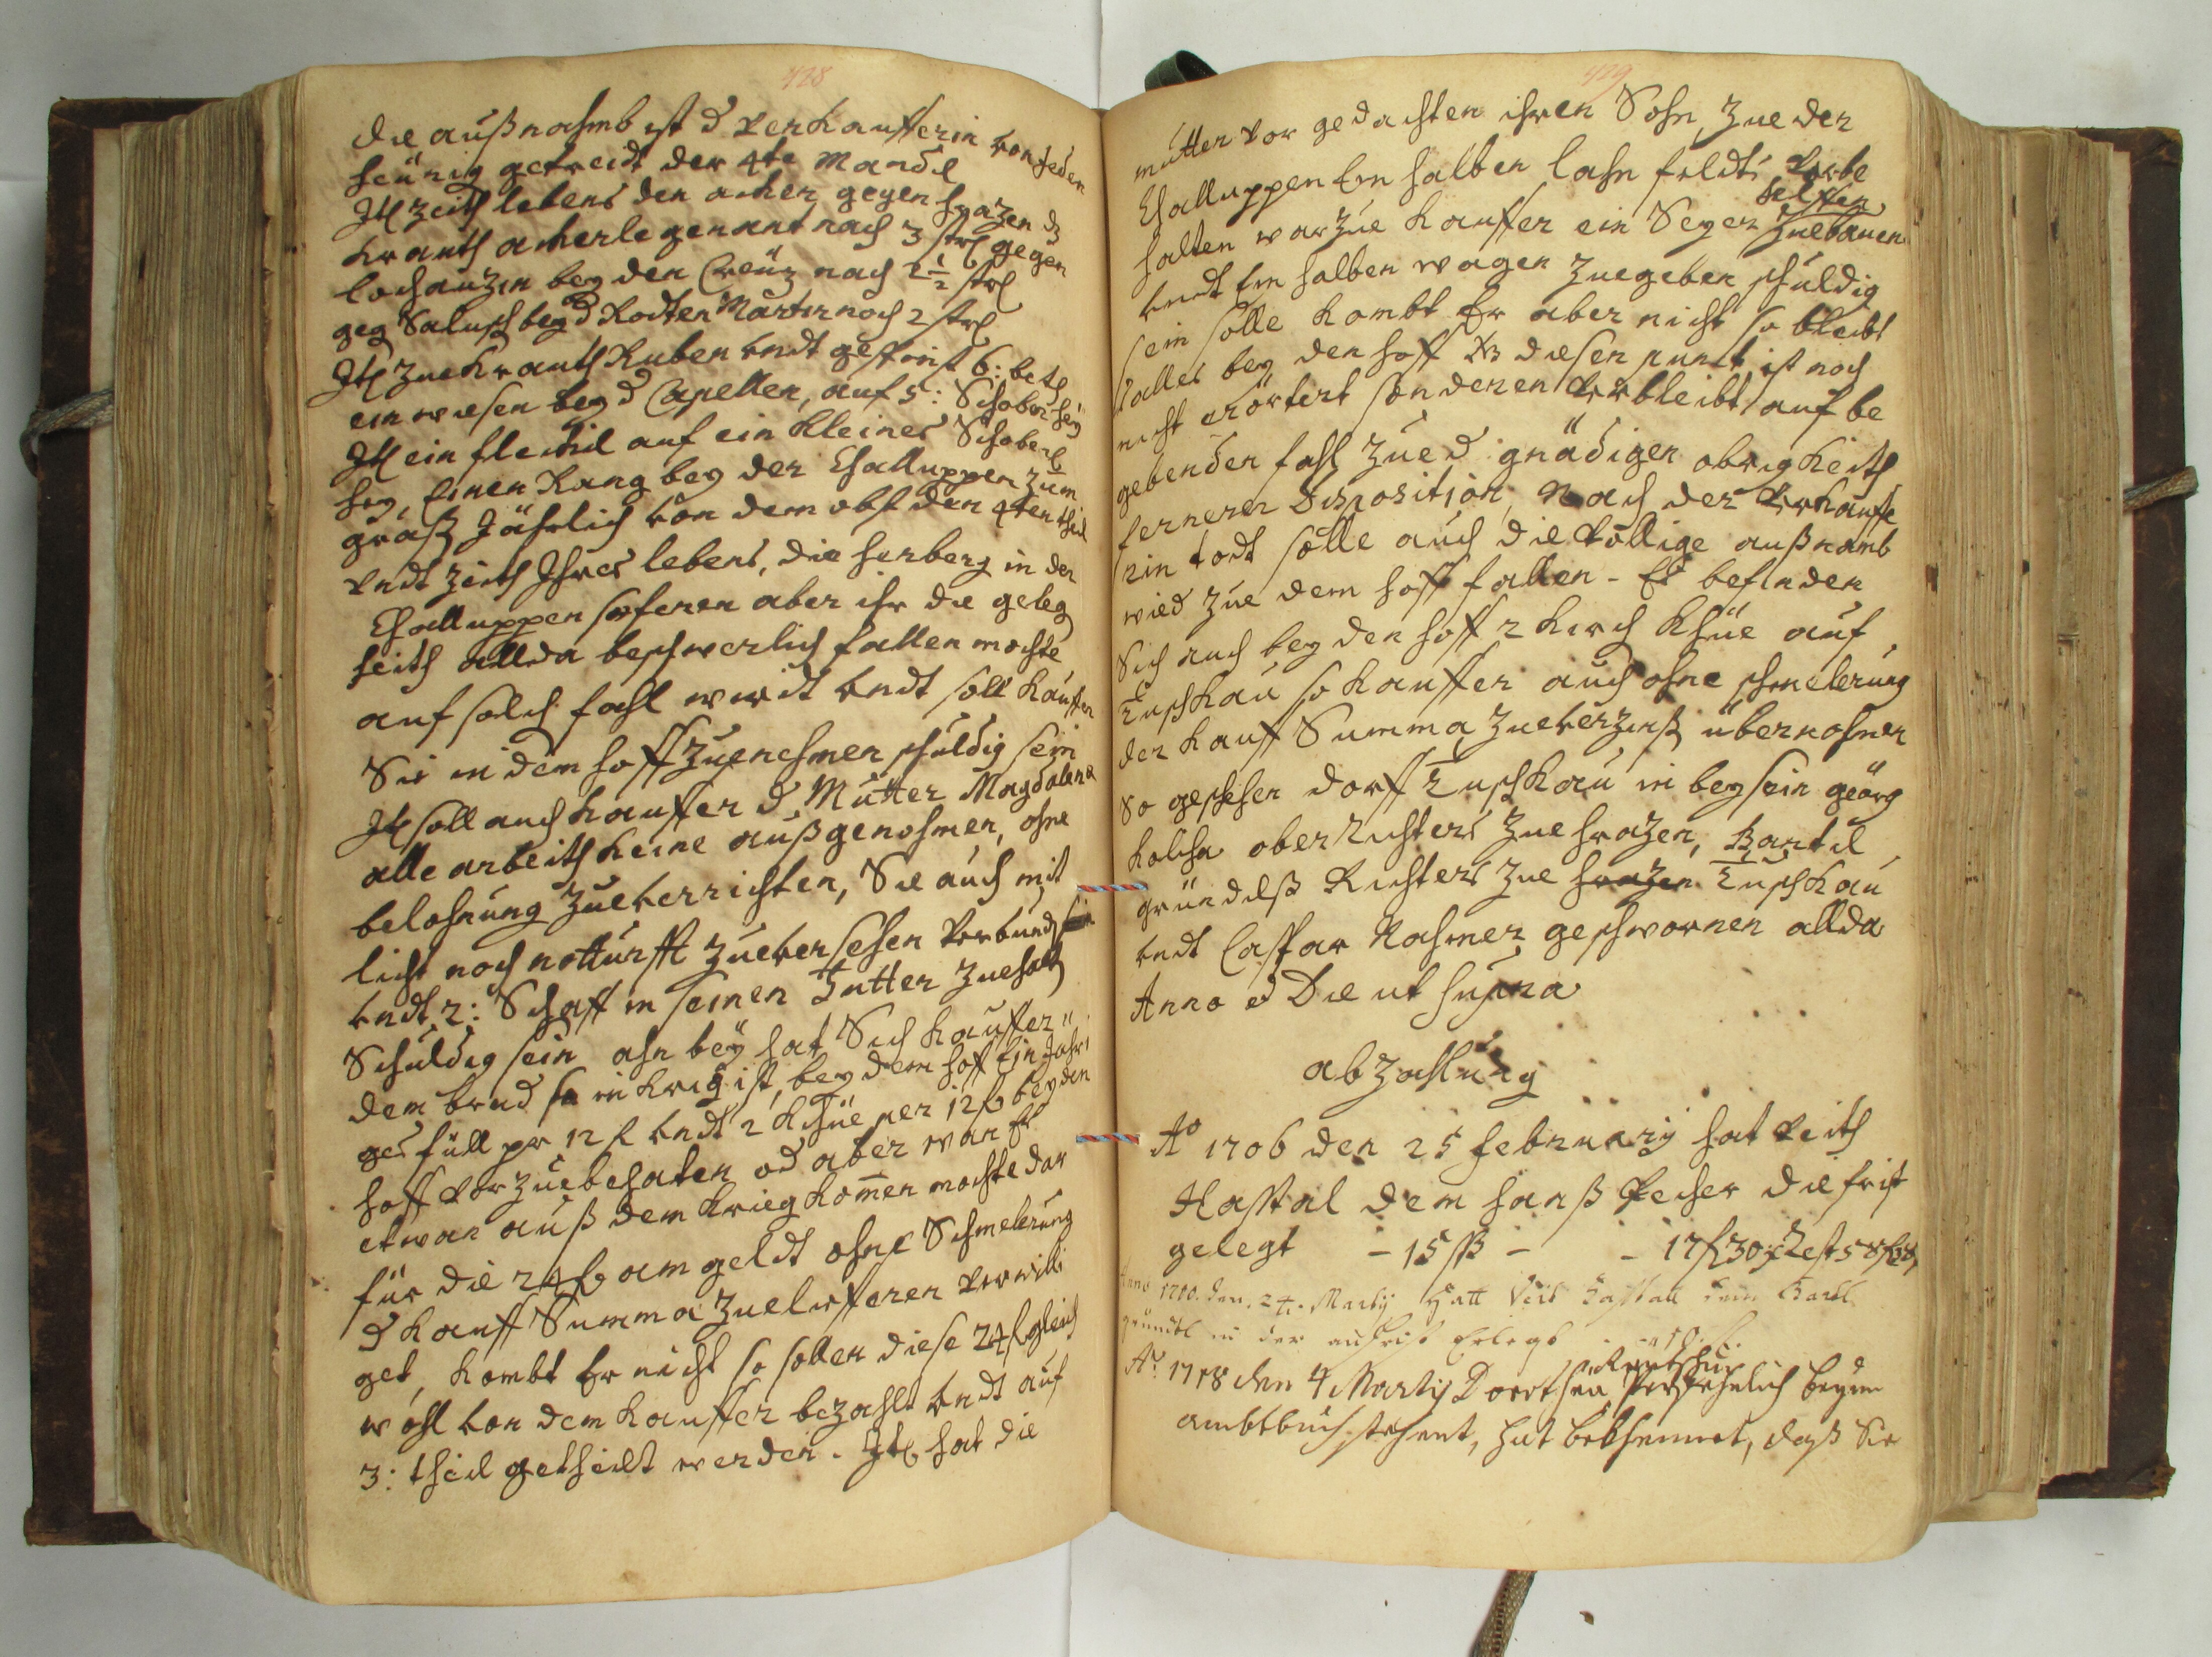 428
die außnahmb ist d verkaufferin von jeden
heünig getreidt der 4te Mandl
Itl zeith lebens den acker gegen hrazen d
krauth ackerle genant nach 3 strl gegen
lochauzen bey den Creüz nach 2½ strl
geg Salusch bey d Rodten Marter noch 2 strl
Itl zue krauth Ruben undt gespinst 6: betl
ein wiesen bey d Capellen, auf 5: Schober hey
Itl ein fleckhil auf ein kleines Schoberl
hey, Einen Rang bey der Challuppen zum
graß Jährlich von dem obst den 4ten theil
undt zeith Ihres lebens, die herberg in der
Challuppen soferen aber ihr die geleg
heith allda beschwerlich fallen mochte
auf solch fahl wirdt undt soll kauffer
Sie in dem hoff zuenehmen schuldig sein
Itl soll auch kauffer d Mutter Magdalena
alle arbeith keine außgenohmen, ohne
belohnung zueverrichten, Sie auch mit
licht noch notturfft zueversehen verbundt
undt 2: Schaff in seinen Futter zuehalt
Schuldig sein ahn bey hat Sich kauffer
dem brud so in krig ist, bey dem hoff Ein Jahri
ges füll per 12 f undt 2 khüe per 12 f bey den
hoff vorzuebehalten od aber wan Er
etwan auß dem krieg komen mochte dar
für die 24 f am geldt ohne Schmelerung
d kauff Summa zueliefferen verwilli
get, kombt Er nicht so sollen diese 24 f gleich
wohl von dem kauffer bezahlt undt auf
3: theil getheilt werden. Itl hat die
429
mutter vor gedachten ihren Sohn, zue der
Challuppen Ein halben lahn feldts vorbe
halten warzue kauffer ein Segen helffen zuebauen
undt Ein halben wagen zuegeben schuldig
sein solle kombt Er aber nicht so bleibt
alles bey den hoff diesen punct ist noch
nicht erörtert sonderen verbleibt auf be
gebenden fahl zue d gnädigen obrigkeith
fernerer Disposition, Nach der verkauffe
rin todt solle auch die völlige außnamb
wied zue dem hoff fallen - Es befinden
Sich auch bey den hoff 2 kirch khüe auf
Tuschkau so kauffer auch ohne schmelerung
der kauff Summa zueverzinß übernohmen
so geschehen dorff Tuschkau in beysein geörg
kolcha ober Richters zue hrazen, Bartl
gründelß Richters zue hrazen Tuschkau
undt Caspar Rahmer geschwornen allda
Anno et Die ut supra
abzahlung
Ao 1706 den 25 february hat veith
Hastal dem hanß Pecher die frist
gelegt - 15 ß - - 17 f 30 x Rest 58
Anno 1710. den. 24. Martij Hatt Veit Hastall dem Bartl
gründl in der anfrist Erlegt - 10 f.
Ao. 1718 den 4 Martij Dorothea Persöhnlich beym
ambtbuch stehent, hat bekhennet, daß Sie